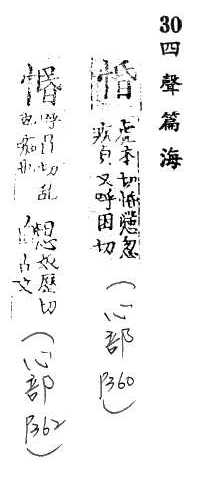 30 四聲篇海
惛 虎本切忽
疾皃又呼困切
(心部 P360)
惽 呼昆切乱
奴歷切
古文
(心部 P362)